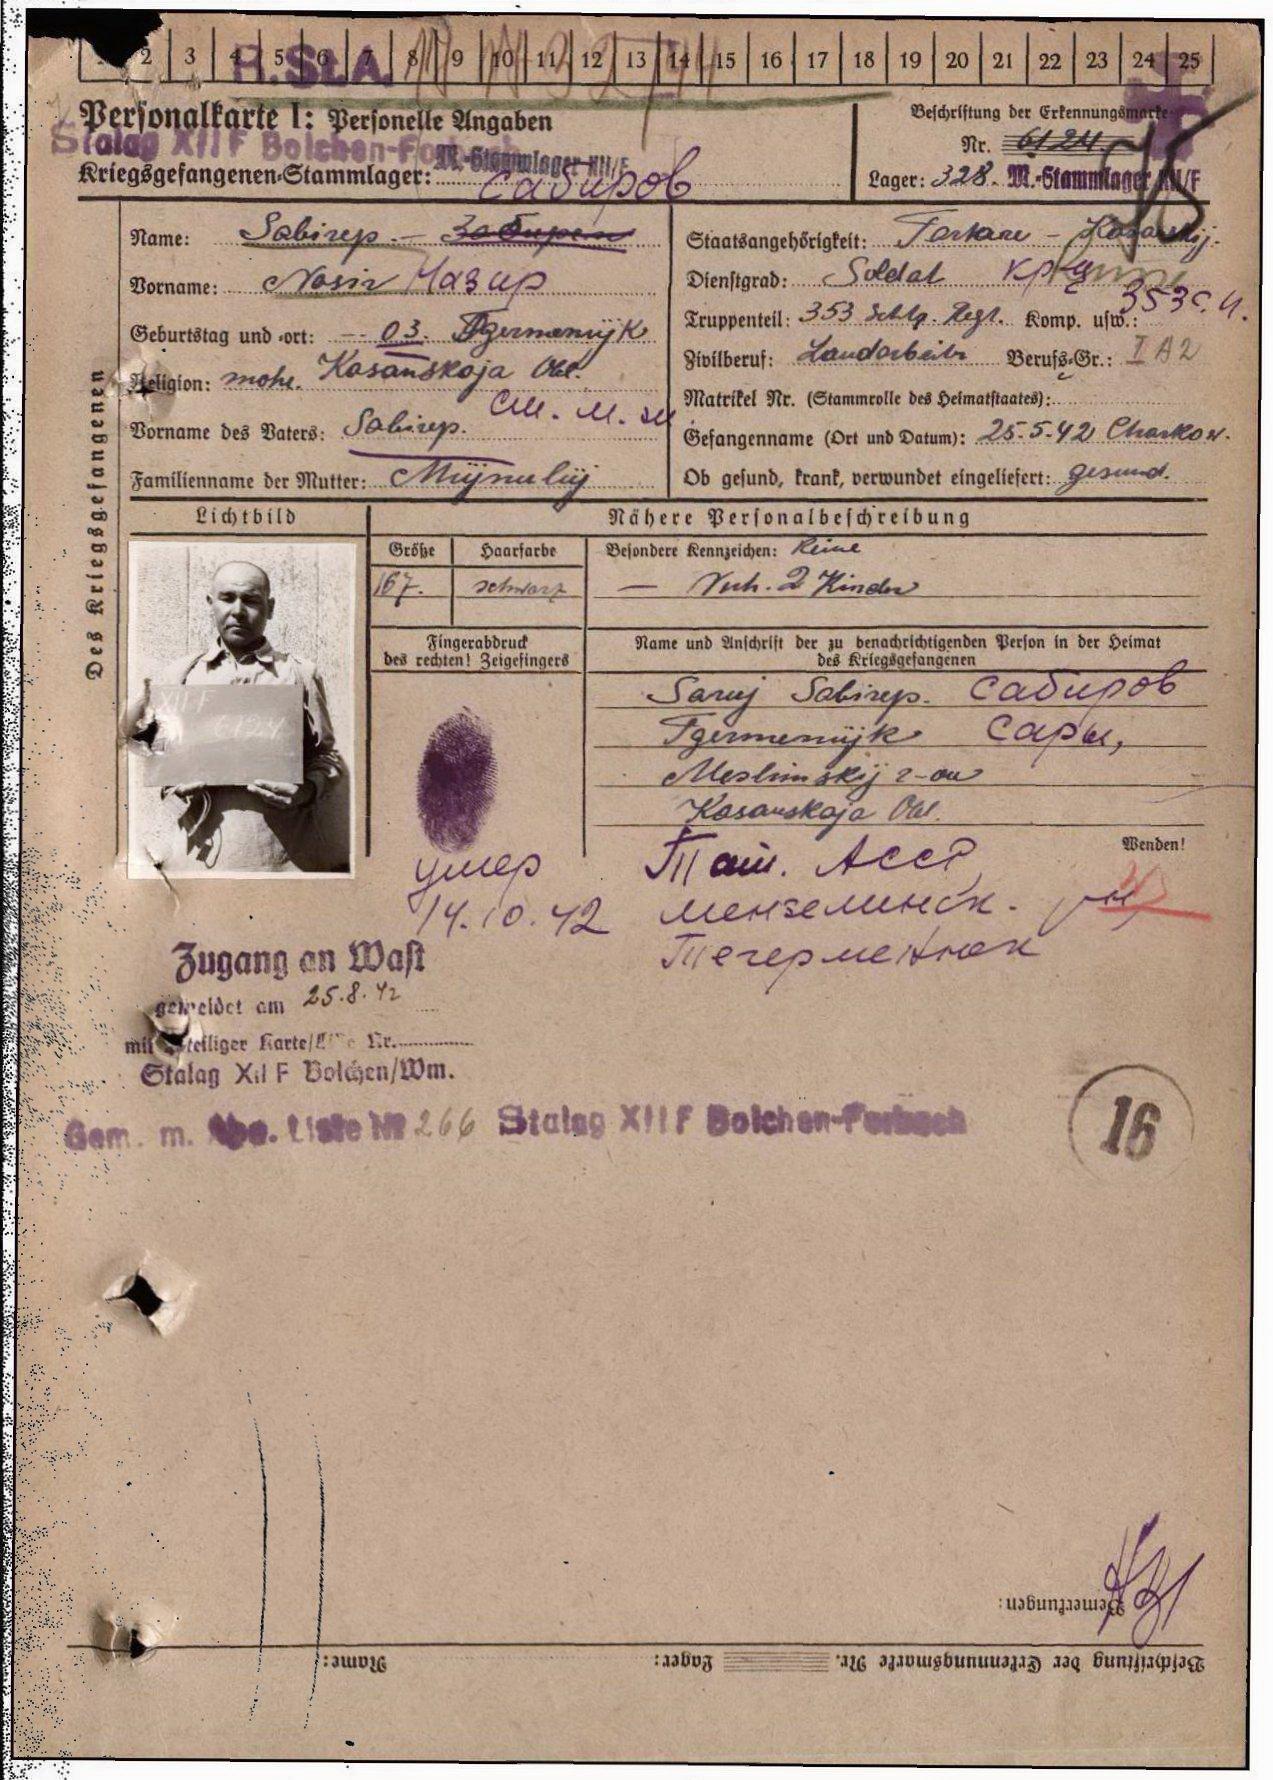 2 3 4 5 6 7 8 9 10 11 12 13 14 15 16 17 18 19 20 21 22 23 24 25
Personalkarte I: Personelle Angaben
Stalag XII F Bolchen-Forbach
M.-Stammlager XII/F
Kriegsgefangenen-Stammlager: Сабиров
Beschriftung der Erkennungsmarke
Nr. 6124
Lager: 328. M.-Stammlager XII/F
Des Kriegsgefangenen
Name: Sabirep. –
Vorname: Nasir Назир
Geburtstag und -ort: -- 03. Tgermenüjk
Religion: moh. Kasanskaja Obl.
Vorname des Vaters: Sabirep.
Familienname der Mutter:
Staatsangehörigkeit: – Kasanskij.
Dienstgrad: Soldat кр-ц
Truppenteil: 353 Schtz. Regt. Komp. usw.: 353 с.п.
Zivilberuf: Landarbeiter Berufs-Gr.: I A 2
Matrikel Nr. (Stammrolle des Heimatstaates):
Gefangenname (Ort und Datum): 25.5.42 Charkow.
Ob gesund, krank, verwundet eingeliefert: gesund.
Lichtbild
Nähere Personalbeschreibung
Größe
Haarfarbe
Besondere Kennzeichen: Keine
167.
schwarz
– Verh. 2 Kinder
XII F
6124
Fingerabdruck
des rechten! Zeigefingers
Name und Anschrift der zu benachrichtigenden Person in der Heimat
des Kriegsgefangenen
Saruj Sabirep. Сабиров
Tgermenüjk Сары,
Meslimskij r-on
Kasanskaja Obl.
Wenden!
умер
14.10.42
Тат. АССР
мензелинск. р-н
Тегерменюк
Zugang an Wast
gemeldet am 25.8.42
mit Karte/ Nr.
Stalag XII F Bolchen/Wm.
Gem. m. Abg. Liste № 266 Stalag XII F Bolchen-Forbach
16
Bemerkungen:
Beschriftung der Erkennungsmarke Nr. Lager: Name: